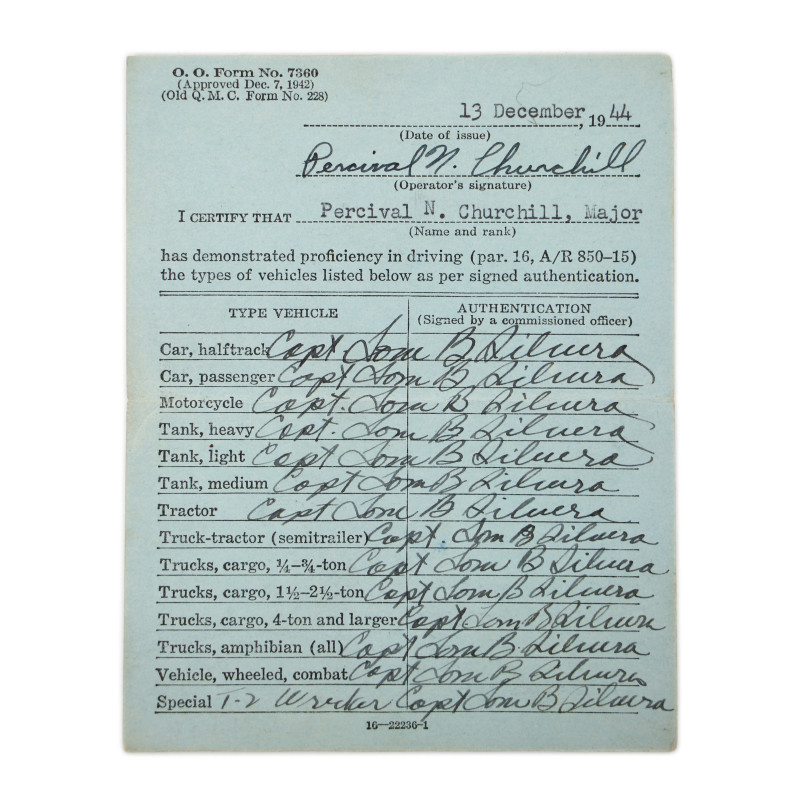 O. O. Form No. 7360
(Approved Dec. 7, 1942)
(Old Q. M. C. Form No. 228)
13 December, 1944
(Date of issue)
Percival N. Churchill
(Operator's signature)
I CERTIFY THAT Percival N. Churchill, Major
(Name and rank)
has demonstrated proficiency in driving (par. 16, A/R 850–15)
the types of vehicles listed below as per signed authentication.
TYPE VEHICLE AUTHENTICATION
(Signed by a commissioned officer)
Car, halftrack Capt Tom B Silvera
Car, passenger Capt Tom B Silvera
Motorcycle Capt. Tom B Silvera
Tank, heavy Capt. Tom B Silvera
Tank, light Capt Tom B Silvera
Tank, medium Capt Tom B Silvera
Tractor Capt Tom B Silvera
Truck-tractor (semitrailer) Capt. Tom B Silvera
Trucks, cargo, ¼–¾-ton Capt Tom B Silvera
Trucks, cargo, 1½–2½-ton Capt Tom B Silvera
Trucks, cargo, 4-ton and larger Capt Tom B Silvera
Trucks, amphibian (all) Capt Tom B Silvera
Vehicle, wheeled, combat Capt Tom B Silvera
Special T-2 Wrecker Capt Tom B Silvera
16—22236-1